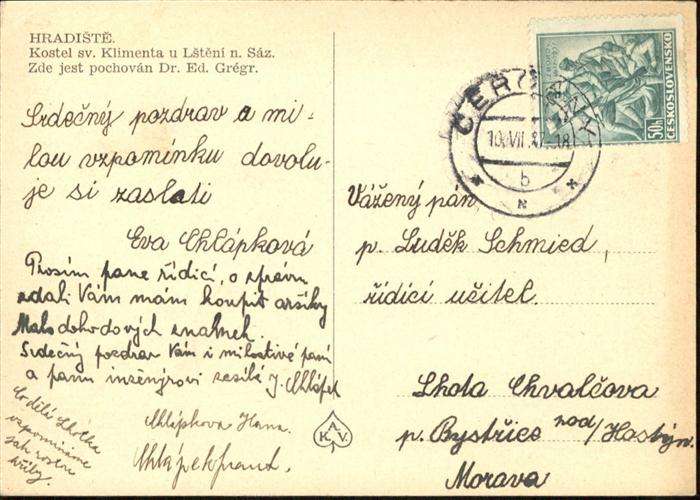 HRADIŠTĚ.
Kostel sv. Klimenta u Lštění n. Sáz.
Zde jest pochován Dr. Ed. Grégr.
Srdečný pozdrav a mi-
lou vzpomínku dovolu-
je si zaslati
Eva Chlápková
Prosím pane řídící, o zprávu
zdali Vám mám koupit aršíky
Malodohodových známek.
Srdečný pozdrav Vám i milostivé paní
a panu inženýrovi zasílá J. Chlápek
Co dělá Lhotka
vzpomínáme
jak rostou
hřiby.
Chlápkova Hana.
KAV
50h
ČESKOSLOVENSKO
ČERČANY
19.VII.37.-18
b
Vážený pán
p. Luděk Schmied,
řídící učitel.
Lhota Chvalčova
p. Bystřice nad/Hostýn.
Morava